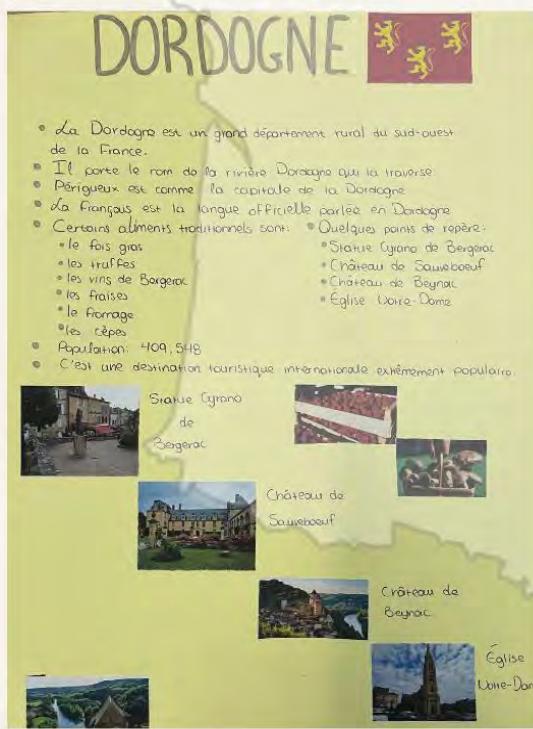 DORDOGNE
• La Dordogne est un grand département rural du sud-ouest
de la France.
• Il porte le nom de la rivière Dordogne qui la traverse
• Périgueux est comme la capitale de la Dordogne
• La Français est la langue officielle parlée en Dordogne
• Certains aliments traditionnels sont:
• le fois gras
• les truffes
• les vins de Bergerac
• les fraises
• le fromage
• les cèpes
• Quelques points de repère:
• Statue Cyrano de Bergerac
• Château de Sauveboeuf
• Château de Beynac
• Église Notre-Dame
• Population: 409,548
• C'est une destination touristique internationale extrêmement populaire.
Statue Cyrano
de
Bergerac
Château de
Sauveboeuf
Château de
Beynac
Église
Notre-Dam